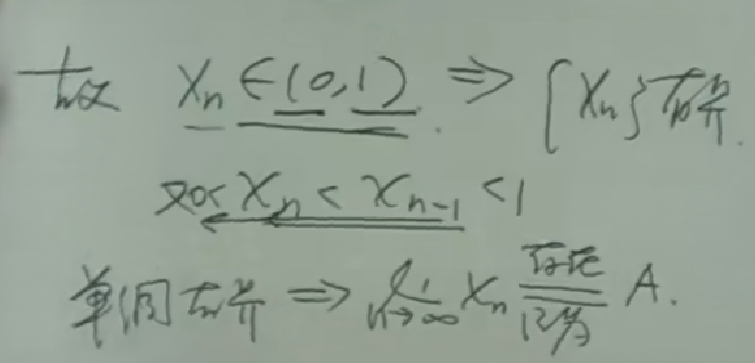 故 Xn ∈ (0,1) ⇒ {Xn}有界.
又0< Xn < Xn-1 <1
单调有界 ⇒ lim n→∞ Xn 存在 记为 A.